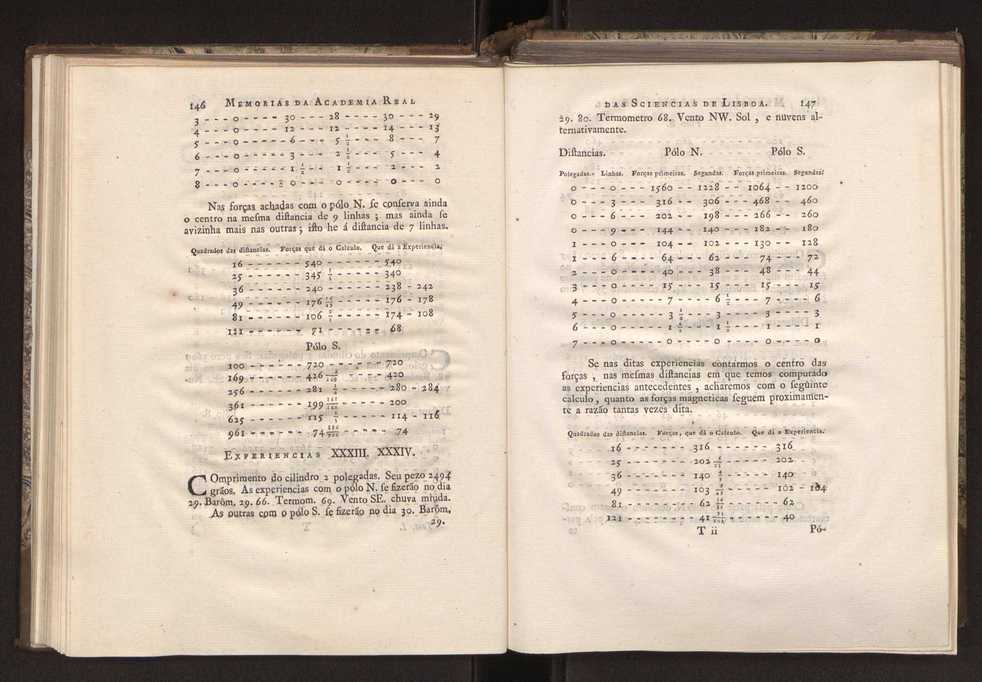 146 MEMORIAS DA ACADEMIA REAL
3 - - - 0 - - - - 30 - - - 28 - - - - 30 - - - 29
4 - - - 0 - - - - 12 - - - 12 - - - - 14 - - - 13
5 - - - 0 - - - - 6 - - - 5 1/2 - - - 8 - - - 7
6 - - - 0 - - - - 3 - - - 2 1/2 - - - 5 - - - 4
7 - - - 0 - - - - 1 1/2 - - 1 1/2 - - - 2 - - - 2
8 - - - 0 - - - - 0 - - - 0 - - - - 0 - - - 0
Nas forças achadas com o pólo N. ſe conſerva ainda
o centro na meſma diſtancia de 9 linhas ; mas ainda ſe
avizinha mais nas outras ; iſto he á diſtancia de 7 linhas.
Quadrados das diſtancias. Forças que dá o Calculo. Que dá a Experiencia.
16 - - - - - - 540 - - - - - - 540
25 - - - - - - 345 3/5 - - - - - 340
36 - - - - - - 240 - - - - - - 238 - 242
49 - - - - - - 176 - - - - - 176 - 178
81 - - - - - - 106 2/3 - - - - - 174 - 108
121 - - - - - - 71 - - - - - - 68
Pólo S.
100 - - - - - - 720 - - - - - - 720
169 - - - - - - 426 - - - - - 420
256 - - - - - - 281 1/4 - - - - - 280 - 284
361 - - - - - - 199 - - - - - 200
625 - - - - - - 115 1/5 - - - - - 114 - 116
961 - - - - - - 74 - - - - - 74
EXPERIENCIAS XXXIII. XXXIV.
COmprimento do cilindro 2 polegadas. Seu pezo 2494
grãos. As experiencias com o pólo N. ſe fizerão no dia
29. Baróm. 29. 66. Termom. 69. Vento SE. chuva miuda.
As outras com o pólo S. ſe fizerão no dia 30. Baróm.
29.
DAS SCIENCIAS DE LISBOA. 147
29. 80. Termometro 68. Vento NW. Sol , e nuvens al-
ternativamente.
Diſtancias. Pólo N. Pólo S.
Polegadas. - Linhas. Forças primeiras. Segundas. Forças primeiras. Segundas.
0 - - - 0 - - - 1560 - - 1228 - - 1064 - - - 1200
0 - - - 3 - - - 316 - - 306 - - - 468 - - - 460
0 - - - 6 - - - 202 - - 198 - - - 266 - - - 260
0 - - - 9 - - - 144 - - 140 - - - 182 - - - 180
1 - - - 0 - - - 104 - - 102 - - - 130 - - - 128
1 - - - 6 - - - 64 - - - 62 - - - 74 - - - 72
2 - - - 0 - - - 40 - - - 38 - - - 48 - - - 44
3 - - - 0 - - - 15 - - - 15 - - - 15 - - - 15
4 - - - 0 - - - - 7 - - - 6 1/2 - - - 7 - - - - 6
5 - - - 0 - - - - 3 1/2 - - 3 - - - - 3 - - - - 3
6 - - - 0 - - - - 1 1/2 - - 1 1/2 - - - 1 - - - - 1
7 - - - 0 - - - - 0 - - - 0 - - - - 0 - - - - 0
Se nas ditas experiencias contarmos o centro das
forças , nas meſmas diſtancias em que temos computado
as experiencias antecedentes , acharemos com o ſeguinte
calculo , quanto as forças magneticas ſeguem proximamen-
te a razão tantas vezes dita.
Quadrados das diſtancias. Forças, que dá o Calculo. Que dá a Experiencia.
16 - - - - - - 316 - - - - - - 316
25 - - - - - - 202 - - - - - 202
36 - - - - - - 140 4/9 - - - - - 140
49 - - - - - - 103 - - - - - 102 - 104
81 - - - - - - 62 - - - - - 62
121 - - - - - - 41 - - - - - 40
T ii Pó-